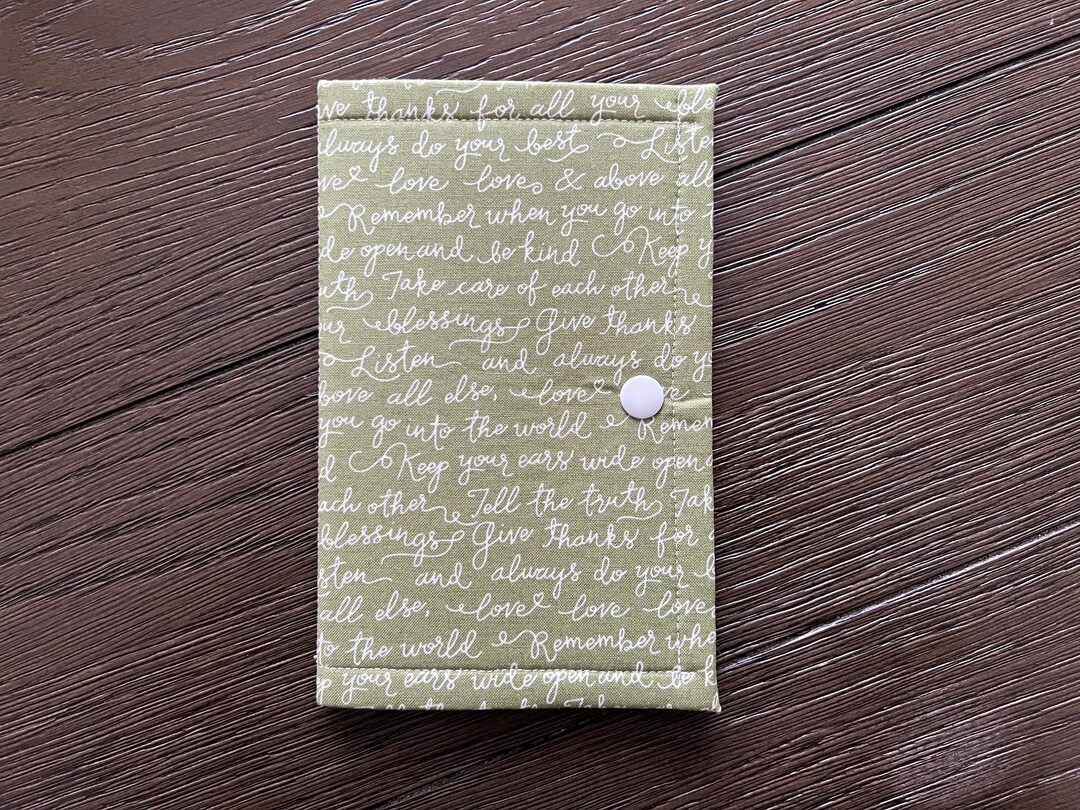 ve thanks for all your ble
lways do your best Liste
ve love love & above all
Remember when you go into t
de open and be kind Keep y
uth Take care of each other
ur blessings Give thanks
Listen and always do yo
bove all else, love ve
you go into the world Remem
d Keep your ears wide open
ach other Tell the truth Tak
blessings Give thanks for a
sten and always do your b
all else, love love love
to the world Remember whe
p your ears wide open and be k